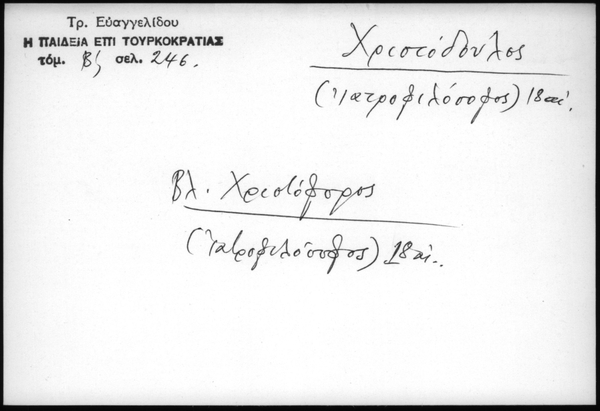 Τρ. Εὐαγγελίδου
Η ΠΑΙΔΕΙΑ ΕΠΙ ΤΟΥΡΚΟΚΡΑΤΙΑΣ
τόμ. Β', σελ. 246.
Χριστόδουλος
(Ἰατροφιλόσοφος) 18 αἰ.
Βλ. Χριστόφορος
(Ἰατροφιλόσοφος) 18 αἰ..